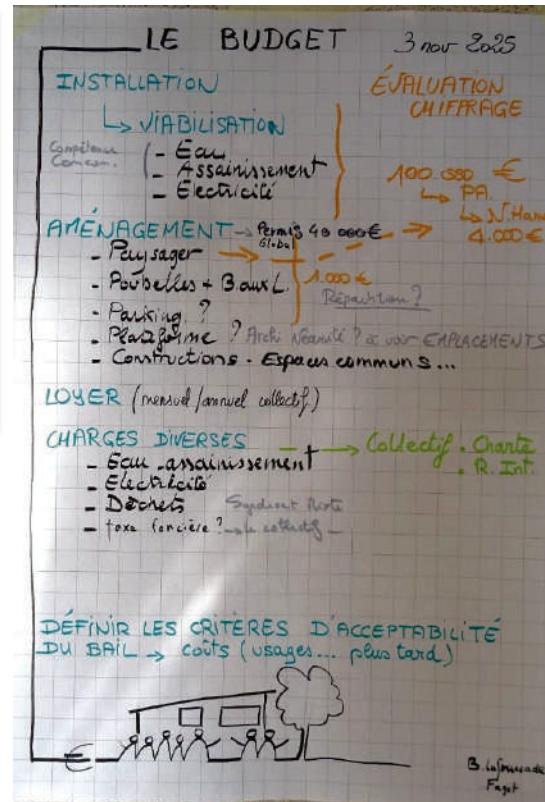 LE BUDGET 3 nov 2025
INSTALLATION
ÉVALUATION
CHIFFRAGE
↳ VIABILISATION
Compétence
Comcom.
- Eau
- Assainissement
- Électricité
100.000 €
↳ PA.
↳ N. Ham
4.000 €
AMÉNAGEMENT → Permis 40 000 €
Global
- Paysager
- Poubelles + B. aux L.
1.000 €
Répartition ?
- Parking ?
- Plateforme ? Archi Nécessité ? à voir EMPLACEMENTS
- Constructions - Espaces communs...
LOYER (mensuel/annuel collectif)
CHARGES DIVERSES → Collectif . Charte
. R. Int.
- Eau - assainissement
- Électricité
- Déchets Syndicat Mixte
- taxe foncière ? → le collectif -
DÉFINIR LES CRITÈRES D'ACCEPTABILITÉ
DU BAIL → coûts (usages... plus tard)
€
B.
Fagot